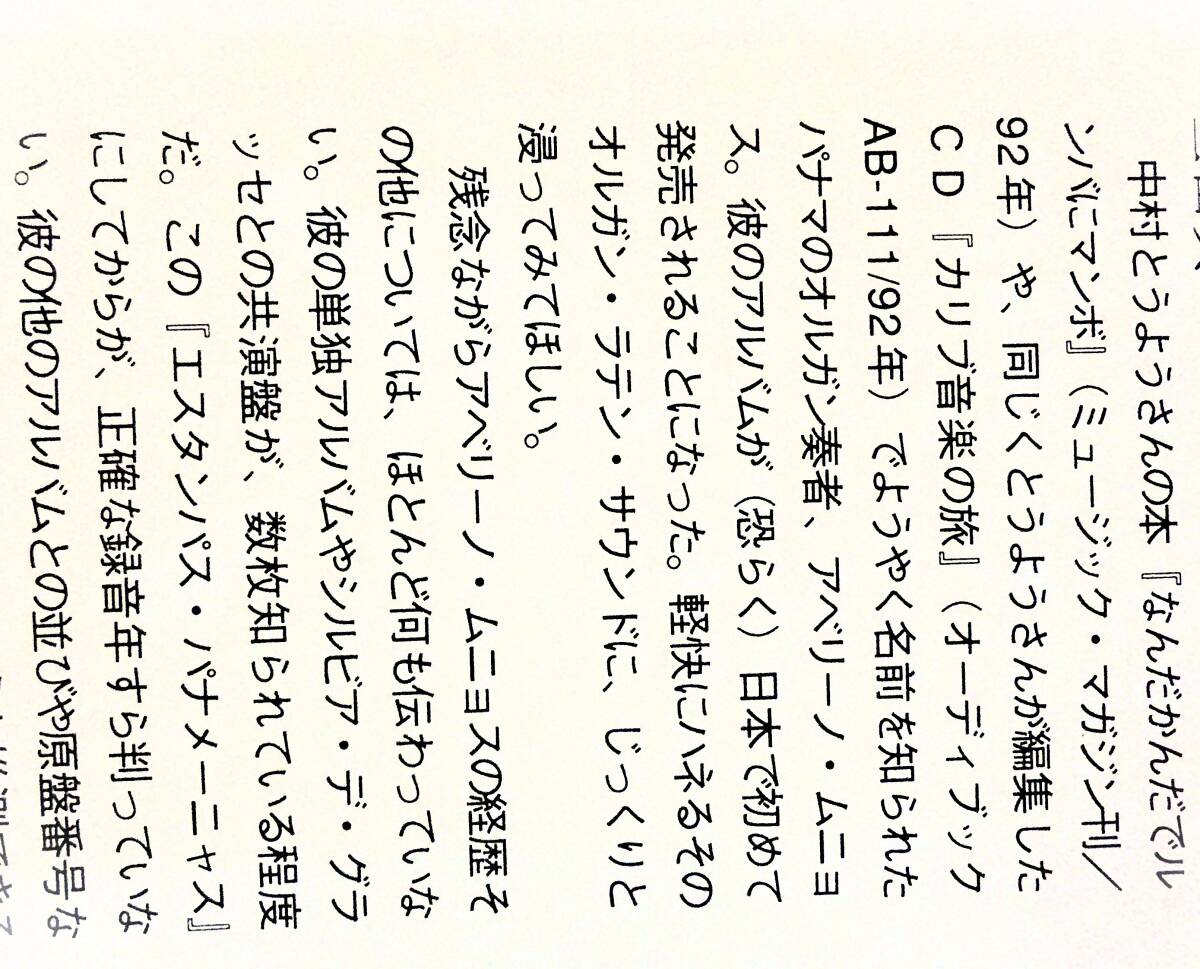 中村とうようさんの本『なんだかんだでル
ンバにマンボ』（ミュージック・マガジン刊／
92年）や、同じくとうようさんが編集した
ＣＤ『カリブ音楽の旅』（オーディブック
AB-111/92年）でようやく名前を知られた
パナマのオルガン奏者、アベリーノ・ムニョ
ス。彼のアルバムが（恐らく）日本で初めて
発売されることになった。軽快にハネるその
オルガン・ラテン・サウンドに、じっくりと
浸ってみてほしい。
残念ながらアベリーノ・ムニョスの経歴そ
の他については、ほとんど何も伝わっていな
い。彼の単独アルバムやシルビア・デ・グラ
ッセとの共演盤が、数枚知られている程度
だ。この『エスタンパス・パナメーニャス』
にしてからが、正確な録音年すら判っていな
い。彼の他のアルバムとの並びや原盤番号な